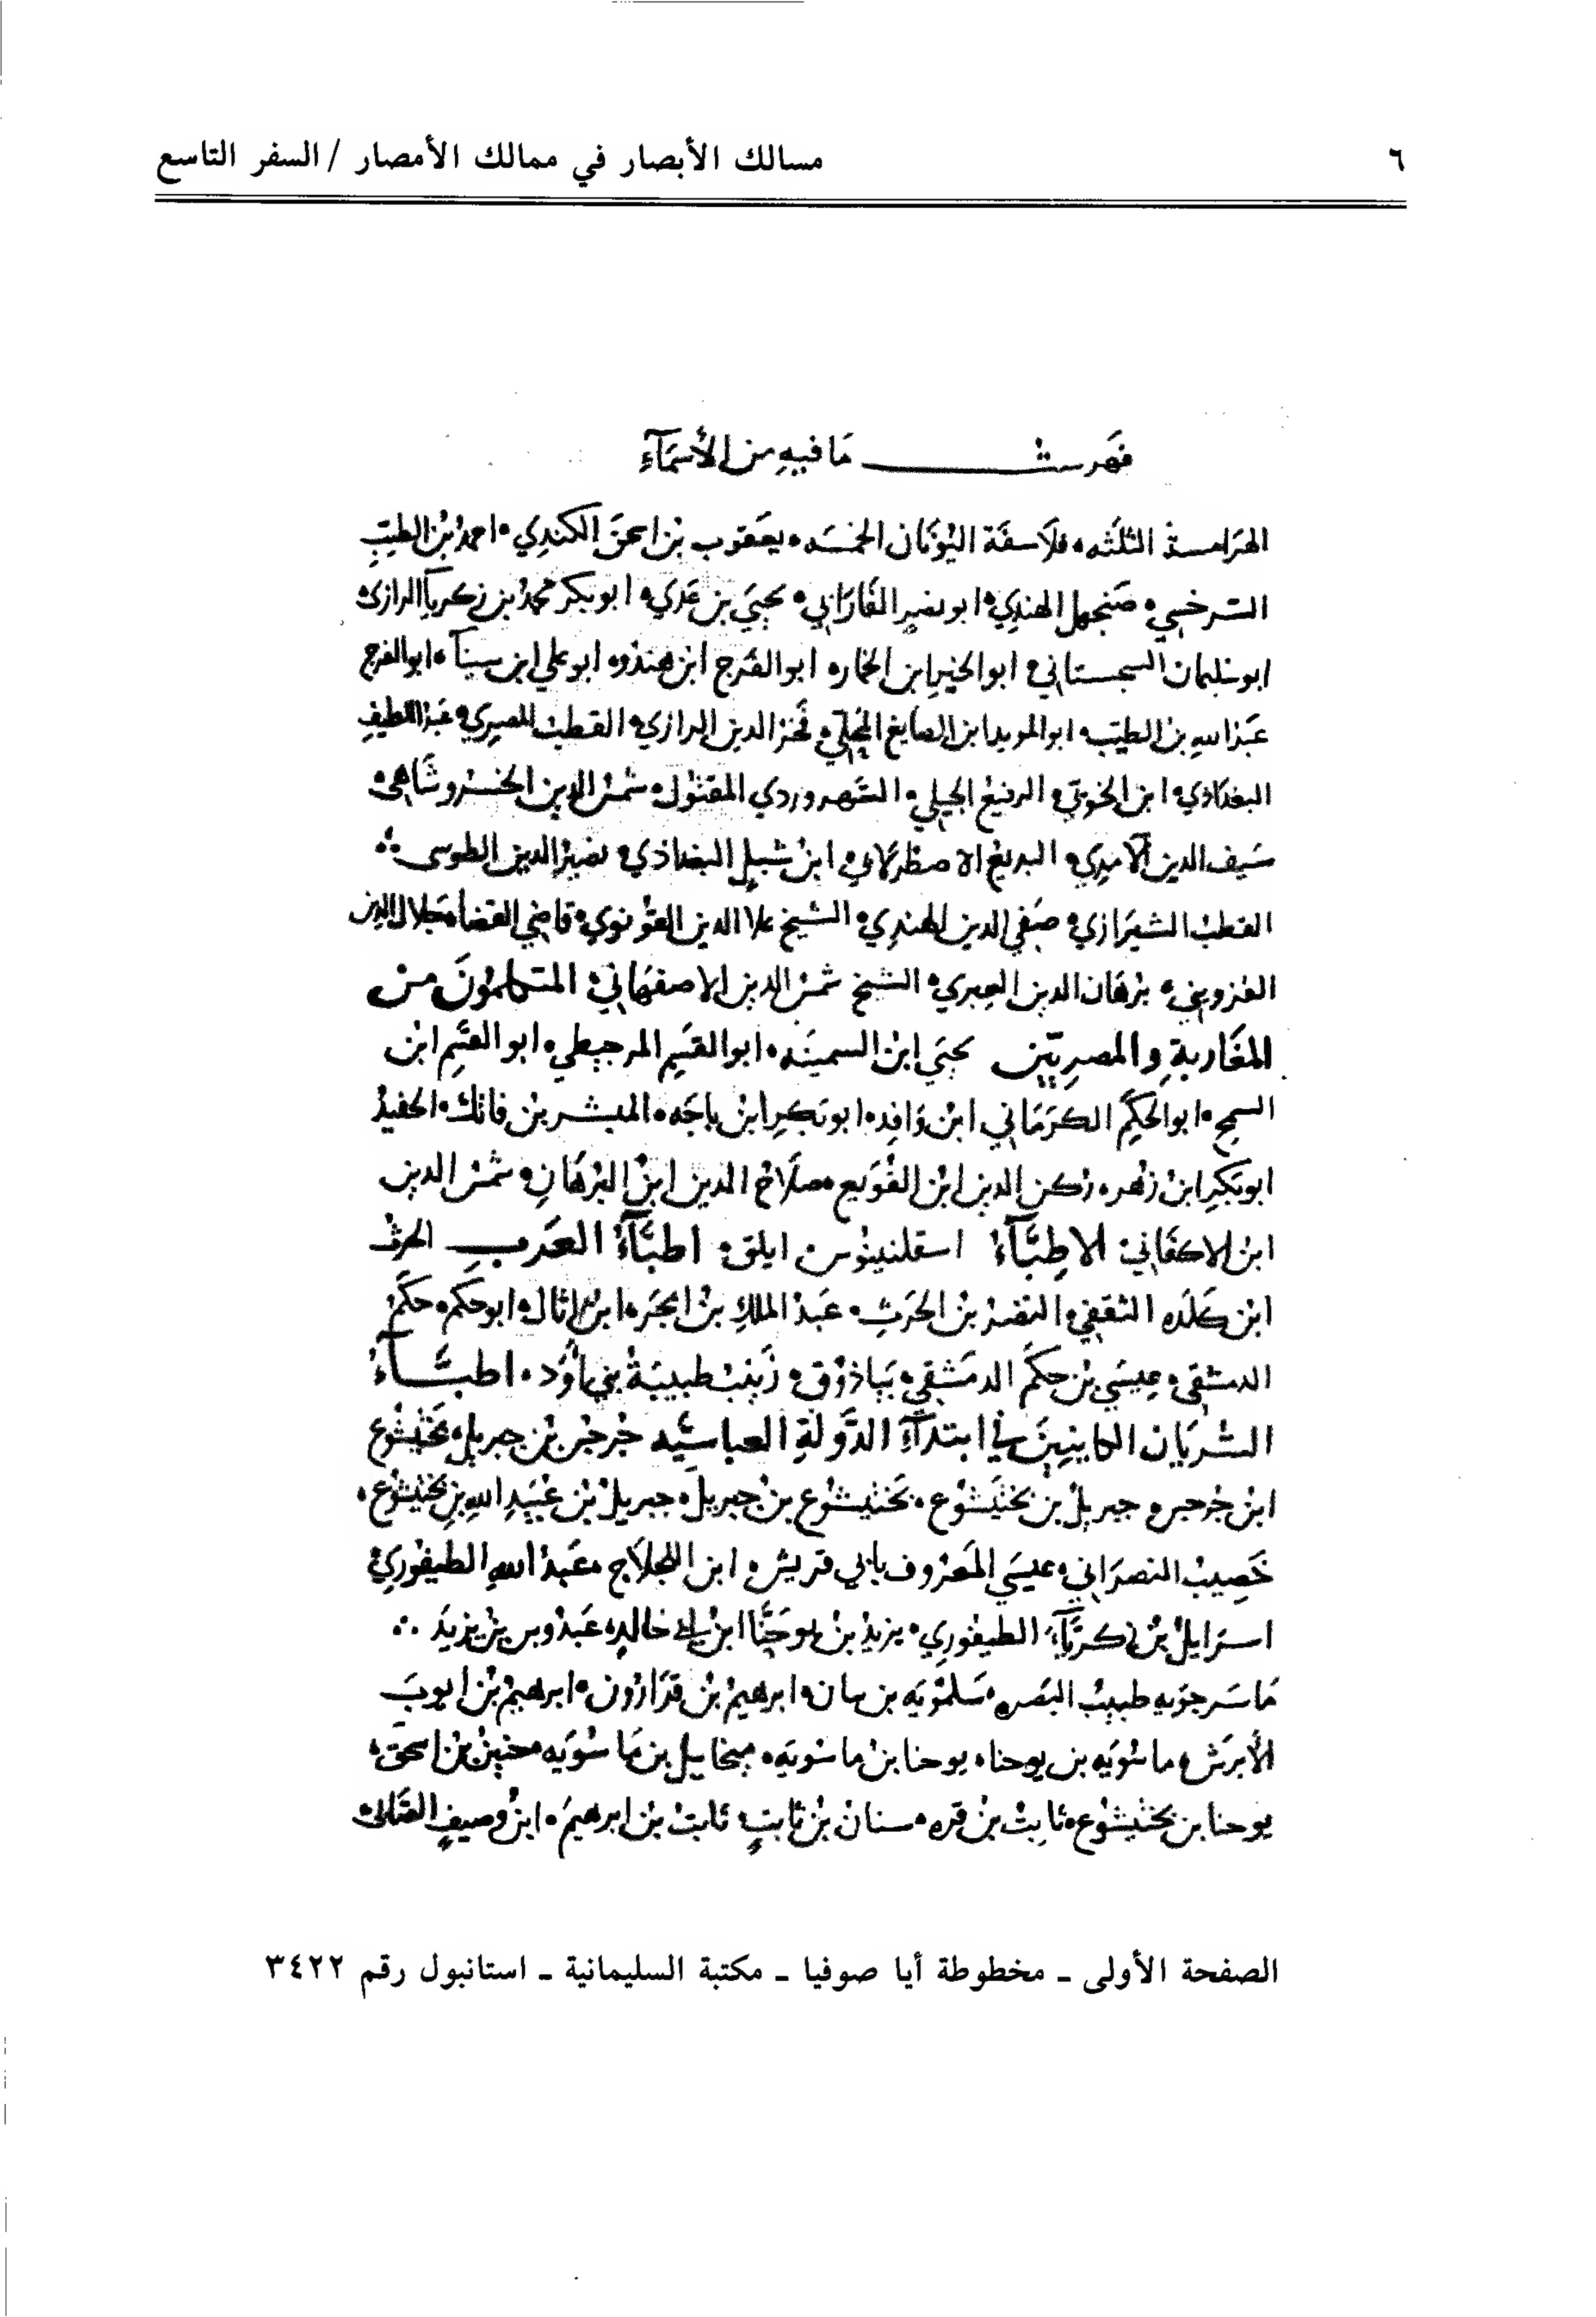 ٦
مسالك الأبصار في ممالك الأمصار / السفر التاسع
فهرست ما فيه من الأسماء
الهرامسة الثلثه • فلاسفة اليونان الخمسه • يعقوب بن اسحق الكندي • احمد بن الطيب
السرخسي • صنجهل الهندي • ابو نصير الفارابي • يحيي بن عدي • ابو بكر محمد بن زكريا الرازي •
ابو سليمان السجستاني • ابو الخير ابن الخمار • ابو الفرج ابن هندو • ابو علي ابن سينا • ابو الفرج
عبد الله بن الطيب • ابو المويد ابن الصايغ المحلي • فخر الدين الرازي • القطب المصري • عبد اللطيف
البغدادي • ابن الخوتي • الرفيع الجيلي • السهروردي المقتول • شمس الدين الخسروشاهي •
سيف الدين الآمدي • البديع الاصطرلابي • ابن شبل البغداذي • نصير الدين الطوسي
القطب الشيرازي • صفي الدين الهندي • الشيخ علا الدين القونوي • قاضي القضاه جلال الدين
القزويني • برهان الدين العبري • الشيخ شمس الدين الاصفهاني • المتكلمون من
المغاربة والمصريين يحيي ابن السمينه • ابو القسم المرجيطي • ابو القسم ابن
السمح • ابو الحكم الكرماني ابن وافد • ابو بكر ابن باجه • المبشر بن فاتك • الحفيد
ابو بكر ابن زهر • ركن الدين ابن القويع • صلاح الدين ابن البرهان • شمس الدين
ابن الاكفاني • الاطباء اسقلنينوس ايلق • اطباء العرب الحرث
ابن كلده الثقفي • النضر بن الحرث • عبد الملك بن ابجر • ابن اثال • ابو حكم • حكم
الدمشقي • عيسي بن حكم الدمشقي • بياذوق • زينب طبيبة بني اود • اطباء
السريان الكاينين في ابتداء الدولة العباسيه جرجس بن جبريل • بختيشوع
ابن جرجس • جبريل بن بختيشوع • بختيشوع بن جبريل • جبريل بن عبيد الله بن بختيشوع •
خصيب النصراني • عيسي المعروف بابي قريش • ابن اللجلاج • عبد الله الطيفوري
اسرايل بن زكرياء الطيفوري • يزيد بن يوحنا ابن ابي خالد • عبدوس بن يزيد
ماسرجويه طبيب البصره • سلمويه بن بنان • ابرهيم بن قزارون • ابرهيم بن ايوب
الأبرش • ماسويه بن يوحنا • يوحنا بن ماسويه • ميخاييل بن ماسويه • حنين بن اسحق •
يوحنا بن بختيشوع • ثابث بن قره • سنان بن ثابت • ثابت بن ابرهيم • ابن وصيف
الصفحة الأولى - مخطوطة أيا صوفيا - مكتبة السليمانية - استانبول رقم ٣٤٢٢